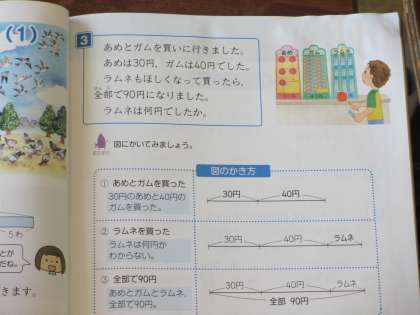 (1)
3
あめとガムを買いに行きました。
あめは30円，ガムは40円でした。
ラムネもほしくなって買ったら，
全部で90円になりました。
ラムネは何円でしたか。
図にかいてみましょう。
図のかき方
① あめとガムを買った
30円のあめと40円の
ガムを買った。
30円 40円
② ラムネを買った
ラムネは何円か
わからない。
30円 40円 ラムネ
③ 全部で90円
あめとガムとラムネ，
全部で90円。
30円 40円 ラムネ
全部 90円
5わ
とが
だね。
きます。